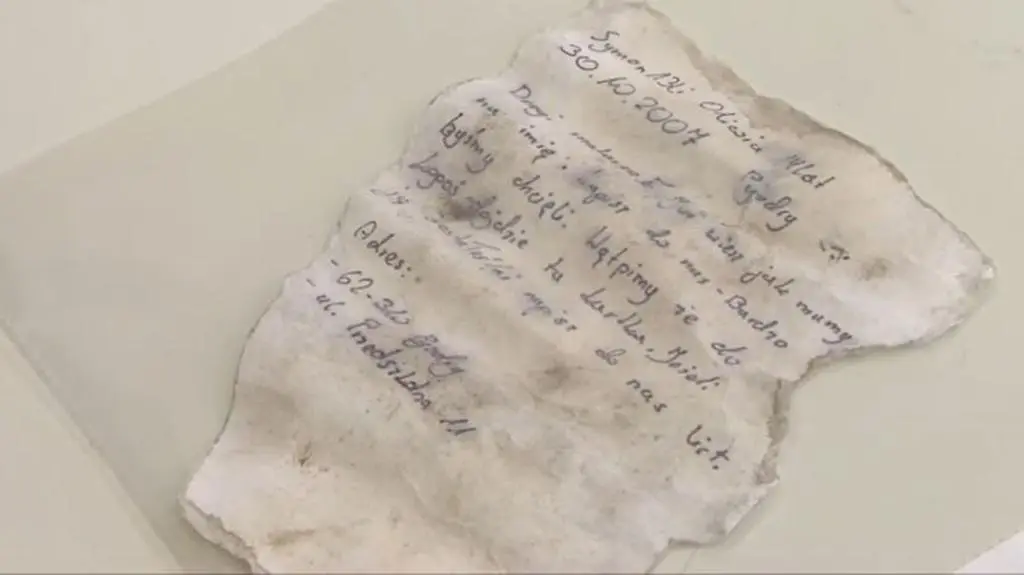 Szymon 13l. Oliwia 11lat
30.10.2007 Pyzdry
Drogi już wiesz jak mamy
na imię i napisz do nas - Bardzo
byśmy chcieli. Wątpimy że do
kogoś dojdzie ta kartka. Jeżeli
napisz do nas list.
Adres:
- 62-310 Pyzdry
- ul. 11